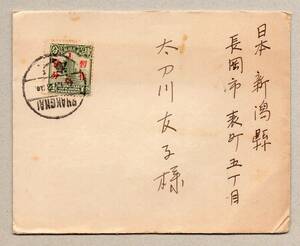 日本 新潟縣
長岡市 表町五丁目
太刀川友子様
SHANGHAI